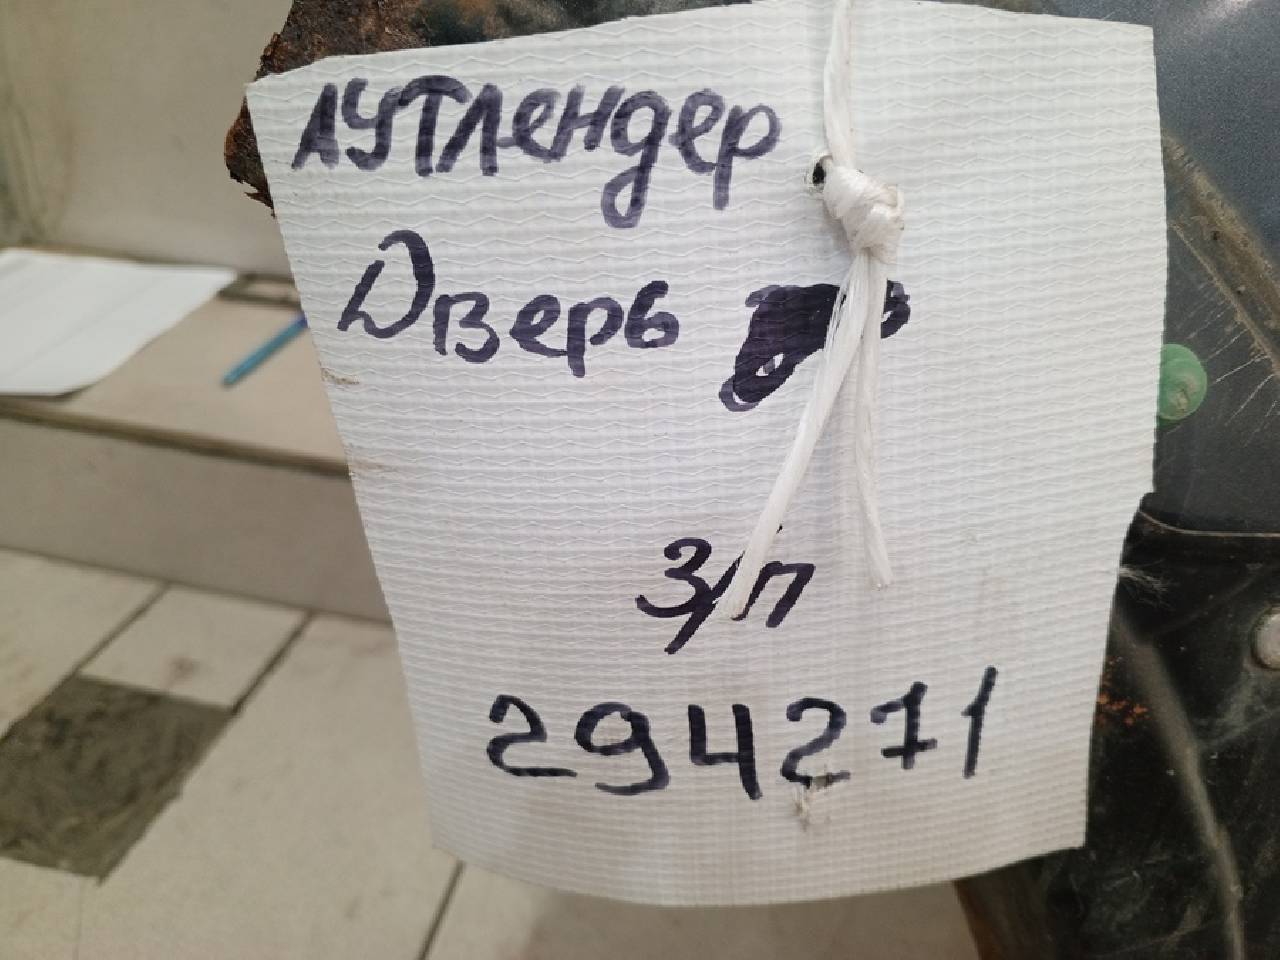 Аутлендер
Дверь
З/п
294271